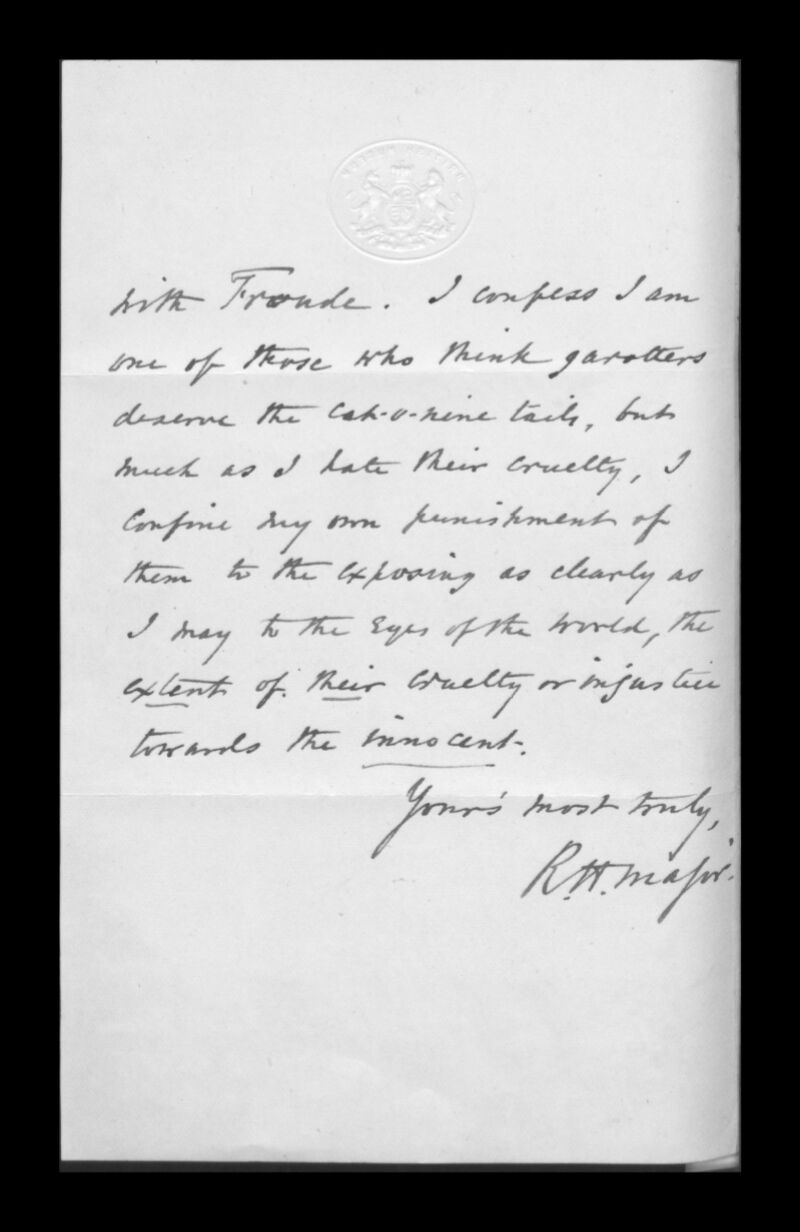 with Froude. I confess I am
one of those who think garotters
deserve the Cat-o-nine tails, but
much as I hate their cruelty, I
confine my own punishment of
them to the exposing as clearly as
I may to the Eyes of the World, the
extent of their cruelty or injustice
towards the innocent.
Your's most truly,
R.H. Major.